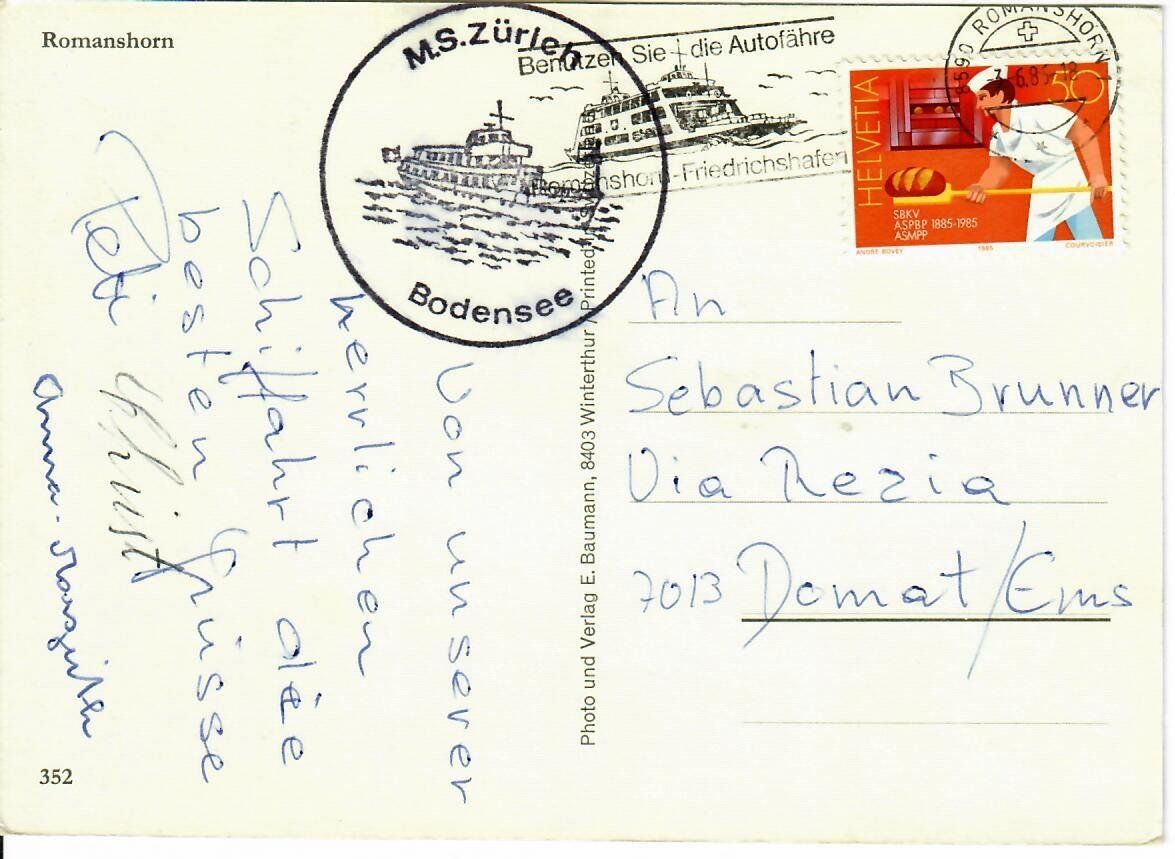 Romanshorn
M.S. Zürich
Bodensee
Benützen Sie die Autofähre
Romanshorn-Friedrichshafen
8590 ROMANSHORN
HELVETIA
50
SBKV
ASPBP 1885-1985
ASMPP
ANDRE BOVEY 1985 COURVOISIER
Von unserer
herrlichen
Schiffahrt die
besten Grüsse
Peti Christ
Anna-
Photo und Verlag E. Baumann, 8403 Winterthur / Printed
An
Sebastian Brunner
Via Rezia
7013 Domat/Ems
352